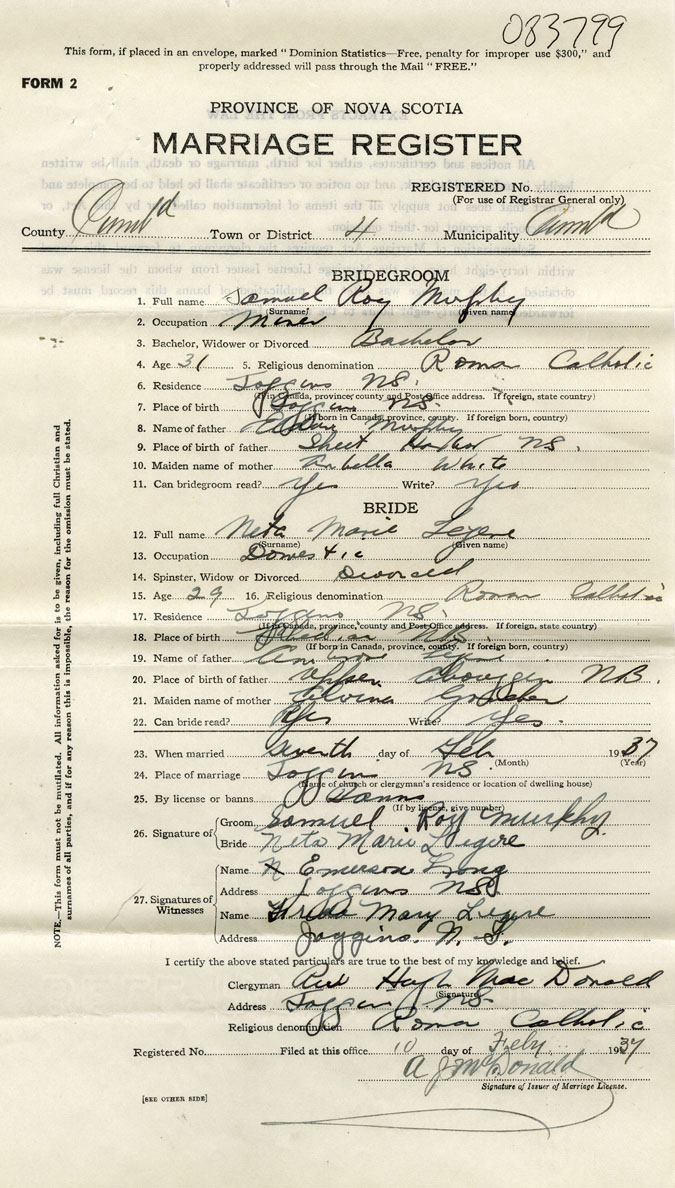 083799
This form, if placed in an envelope, marked "Dominion Statistics—Free, penalty for improper use $300," and
properly addressed will pass through the Mail "FREE."
FORM 2
PROVINCE OF NOVA SCOTIA
MARRIAGE REGISTER
REGISTERED No.
(For use of Registrar General only)
County Cumb'ld Town or District 4 Municipality Cumb'ld
BRIDEGROOM
1. Full name Samuel Roy Murphy
(Surname) (Given name)
2. Occupation Miner
3. Bachelor, Widower or Divorced Bachelor
4. Age 31 5. Religious denomination Roman Catholic
6. Residence Joggins NS.
(If in Canada, province, county and Post Office address. If foreign, state country)
7. Place of birth Joggins NS.
(If born in Canada, province, county. If foreign, country)
8. Name of father Murphy
9. Place of birth of father Sheet Harbor NS.
10. Maiden name of mother Arbella White
11. Can bridegroom read? Yes Write? Yes
BRIDE
12. Full name Neta Marie Legere
(Surname) (Given name)
13. Occupation Domestic
14. Spinster, Widow or Divorced Divorced
15. Age 29 16. Religious denomination Roman Catholic
17. Residence Joggins NS.
(If in Canada, province, county and Post Office address. If foreign, state country)
18. Place of birth NB.
(If born in Canada, province, county. If foreign, country)
19. Name of father
20. Place of birth of father Upper Aboujagin NB.
21. Maiden name of mother
22. Can bride read? Yes Write? Yes.
23. When married seventh day of Feb 1937
(Month) (Year)
24. Place of marriage Joggins NS.
(Name of church or clergyman's residence or location of dwelling house)
25. By license or banns Banns
(If by license, give number)
26. Signature of
Groom Samuel Roy Murphy.
Bride Neta Marie Legere
27. Signatures of Witnesses
Name Emerson Long
Address Joggins NS
Name Mary Legere
Address Joggins. N. S.
I certify the above stated particulars are true to the best of my knowledge and belief.
Clergyman Rev Hugh MacDonald
(Signature)
Address Joggins NS.
Religious denomination Roman Catholic
Registered No. Filed at this office 10 day of Feby 1937
A J McDonald
Signature of Issuer of Marriage License.
[SEE OTHER SIDE]
NOTE.—This form must not be mutilated. All information asked for is to be given, including full Christian and
surnames of all parties, and if for any reason this is impossible, the reason for the omission must be stated.